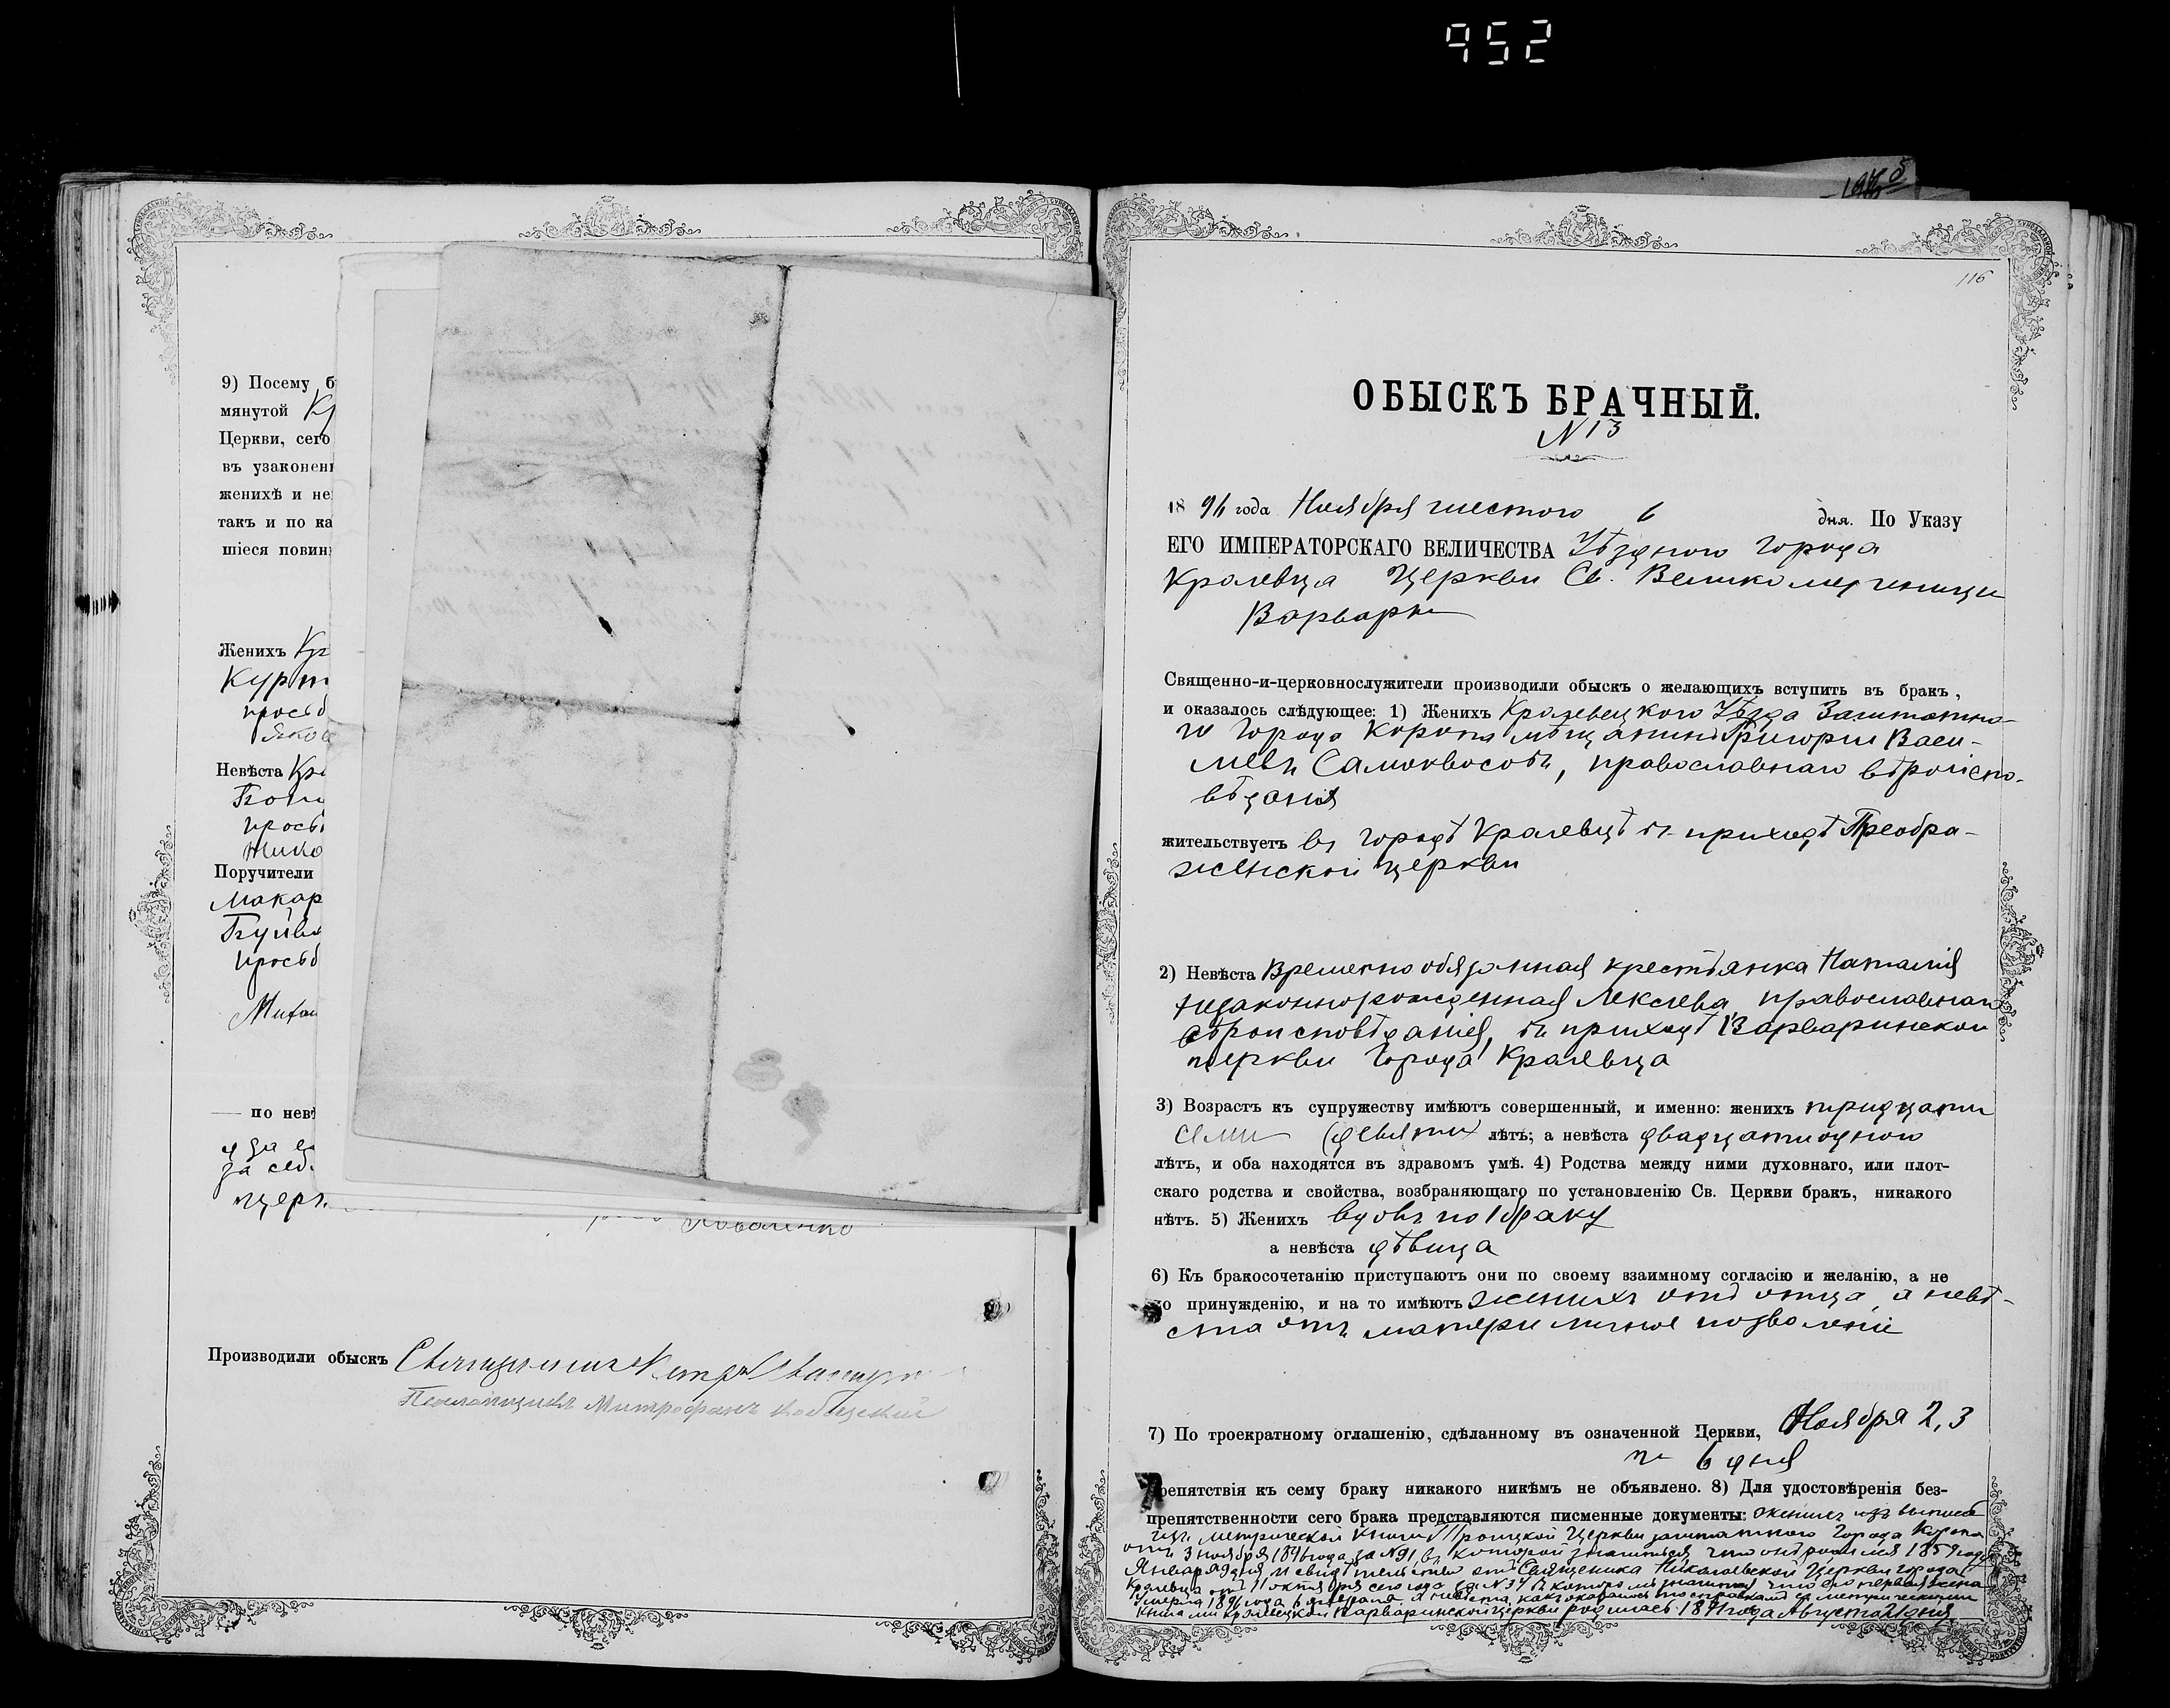 952
9) Посему б
мянутой Кр
Церкви, сего
въ узаконен
женихѣ и не
такъ и по ка
шіеся повин
Женихъ
Курт
просьб
Яков
Невѣста
прось
Нико
Поручители
Макар
Буйв
просьб
Миха
— по невѣ
за себ
церк
Коваленко
Производили обыскъ Священникъ
Псаломщикъ Митрофанъ
116
ОБЫСКЪ БРАЧНЫЙ.
N 13
1896 года Ноября шестого 6 дня. По Указу
ЕГО ИМПЕРАТОРСКАГО ВЕЛИЧЕСТВА Уѣздного города
Кролевца Церкви Св. Великомученицы
Варвары
Священно-и-церковнослужители производили обыскъ о желающихъ вступить въ бракъ,
и оказалось слѣдующее: 1) Женихъ Кролевецкого Уѣзда Заштатно-
го Города Коропа мѣщанинъ Григорій Васи-
льевъ Самоквасовъ, православнаго вѣроиспо-
вѣданія
жительствуетъ въ городѣ Кролевцѣ въ приходѣ Преобра-
женской церкви
2) Невѣста Временно обязанная крестьянка Наталія
незаконнорожденная Алексѣева, православнаго
вѣроисповѣданія, въ приходѣ Варваринской
церкви Города Кролевца
3) Возрастъ къ супружеству имѣютъ совершенный, и именно: женихъ тридцати
семи (девяти) лѣтъ; а невѣста двадцатиодного
лѣтъ, и оба находятся въ здравомъ умѣ. 4) Родства между ними духовнаго, или плот-
скаго родства и свойства, возбраняющаго по установленію Св. Церкви бракъ, никакого
нѣтъ. 5) Женихъ вдовъ по 1 браку
а невѣста дѣвица
6) Къ бракосочетанію приступаютъ они по своему взаимному согласію и желанію, а не
по принужденію, и на то имѣютъ женихъ отъ отца, а невѣ-
ста отъ матери личное позволеніе
7) По троекратному оглашенію, сдѣланному въ означенной Церкви, Ноября 2, 3
и 6 дня
препятствія къ сему браку никакого никѣмъ не объявлено. 8) Для удостовѣренія без-
препятственности сего брака представляются писменные документы: Жениха изъ выписъ
изъ метрической книги Троицкой Церкви заштатного Города Коропа
отъ 3 ноября 1896 года за N 91, въ которой значится, что онъ родился 1859 года
Января дня и свидѣтельство отъ Священика Николаевской Церкви города
Кролевца отъ 11 октября сего года за N 34 въ котором значится что его первая жена
умерла 1896 года 6 февраля а невѣста, какъ оказалось по справкамъ съ метрическими
книгами Кролевецкой Варваринской церкви родилась 1871 года Августа 21 дня